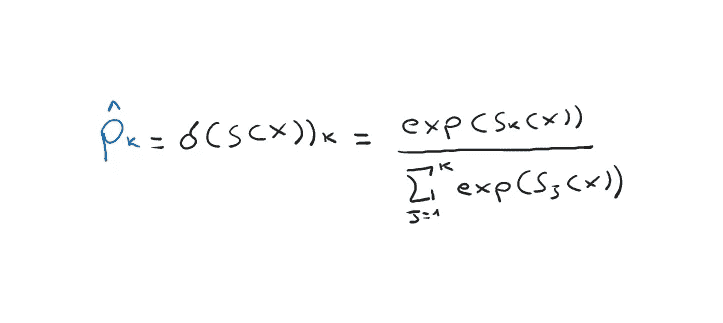 p̂ₖ = σ(s(x))ₖ = exp(sₖ(x)) / Σⱼ₌₁ᴷ exp(sⱼ(x))